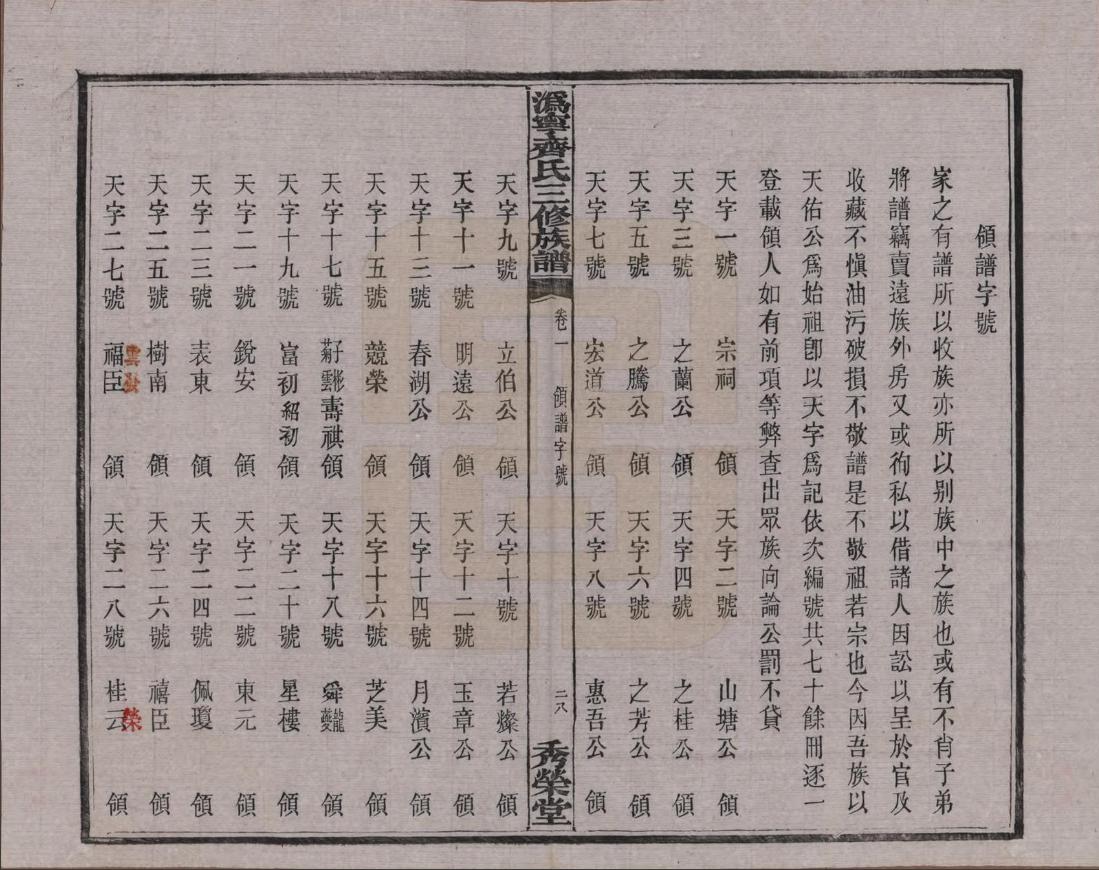 領譜字號
家之有譜所以收族亦所以别族中之族也或有不肖子弟
將譜竊賣遠族外房又或徇私以借諸人因訟以呈於官及
收藏不慎油污破損不敬譜是不敬祖若宗也今因吾族以
天佑公爲始祖卽以天字爲記依次編號共七十餘冊逐一
登載領人如有前項等弊查出眾族向論公罰不貸
天字一號 宗祠 領 天字二號 山塘公 領
天字三號 之蘭公 領 天字四號 之桂公 領
天字五號 之騰公 領 天字六號 之芳公 領
天字七號 宏道公 領 天字八號 惠吾公 領
潙寧齊氏三修族譜 卷一 領譜字號 二八 秀榮堂
天字九號 立伯公 領 天字十號 若燦公 領
天字十一號 明遠公 領 天字十二號 玉章公 領
天字十三號 春湖公 領 天字十四號 月濱公 領
天字十五號 競榮 領 天字十六號 芝美 領
天字十七號 壽祺 領 天字十八號 舜龍夔 領
天字十九號 富初紹初 領 天字二十號 星樓 領
天字二一號 銳安 領 天字二二號 東元 領
天字二三號 表東 領 天字二四號 佩瓊 領
天字二五號 樹南 領 天字二六號 禧臣 領
天字二七號 福臣 領 天字二八號 桂云 榮 領